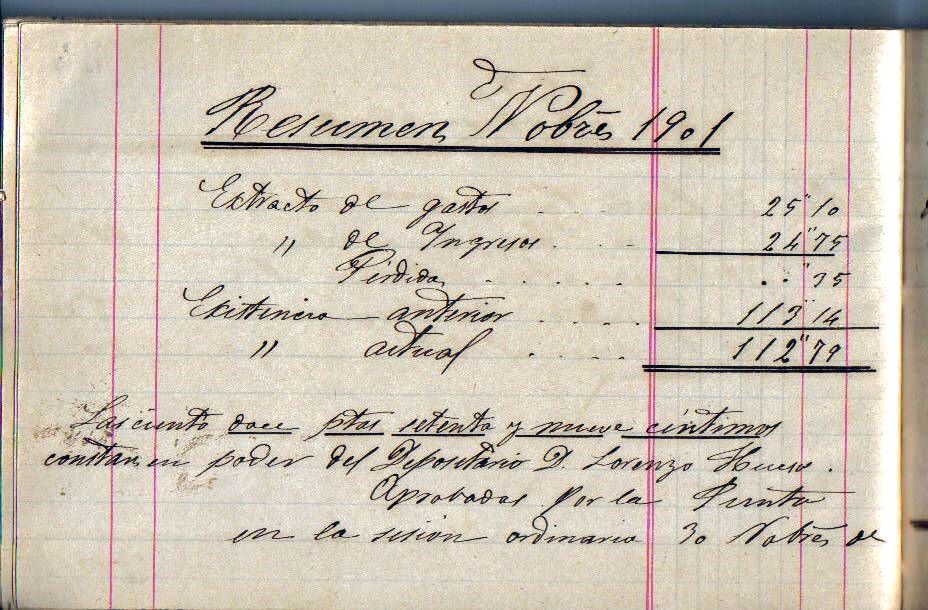 Resumen Nobre 1901
Extracto de gastos .... 25"10
" de Ingresos .... 24"75
Pérdida ...... .."35
Existencia anterior .... 113"14
" actual .... 112"79
Las ciento doce ptas setenta y nueve céntimos
constan en poder del Depositario D. Lorenzo Hueso.
Aprobadas por la Junta
en la sesión ordinaria 30 Nobre de